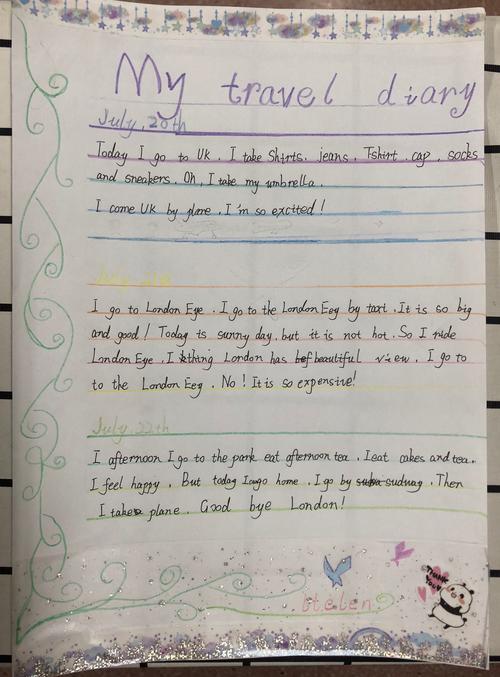 My travel diary
July, 20th
Today I go to Uk. I take Shirts. jeans. Tshirt. cap. socks
and sneakers. Oh, I take my umbrella.
I come UK by plane. I'm so excited!
I go to London Eye. I go to the London Eey by taxi. It is so big
and good! Today is sunny day. but it is not hot. So I ride
London Eye. I thing London has beautiful view. I go to
to the London Eey. No! It is so expensive!
July. 22th
I afternoon I go to the park eat afternoon tea. I eat cakes and tea.
I feel happy. But today I go home. I go by sudway. Then
I take plane. Good bye London!
THANK YOU!
Helen